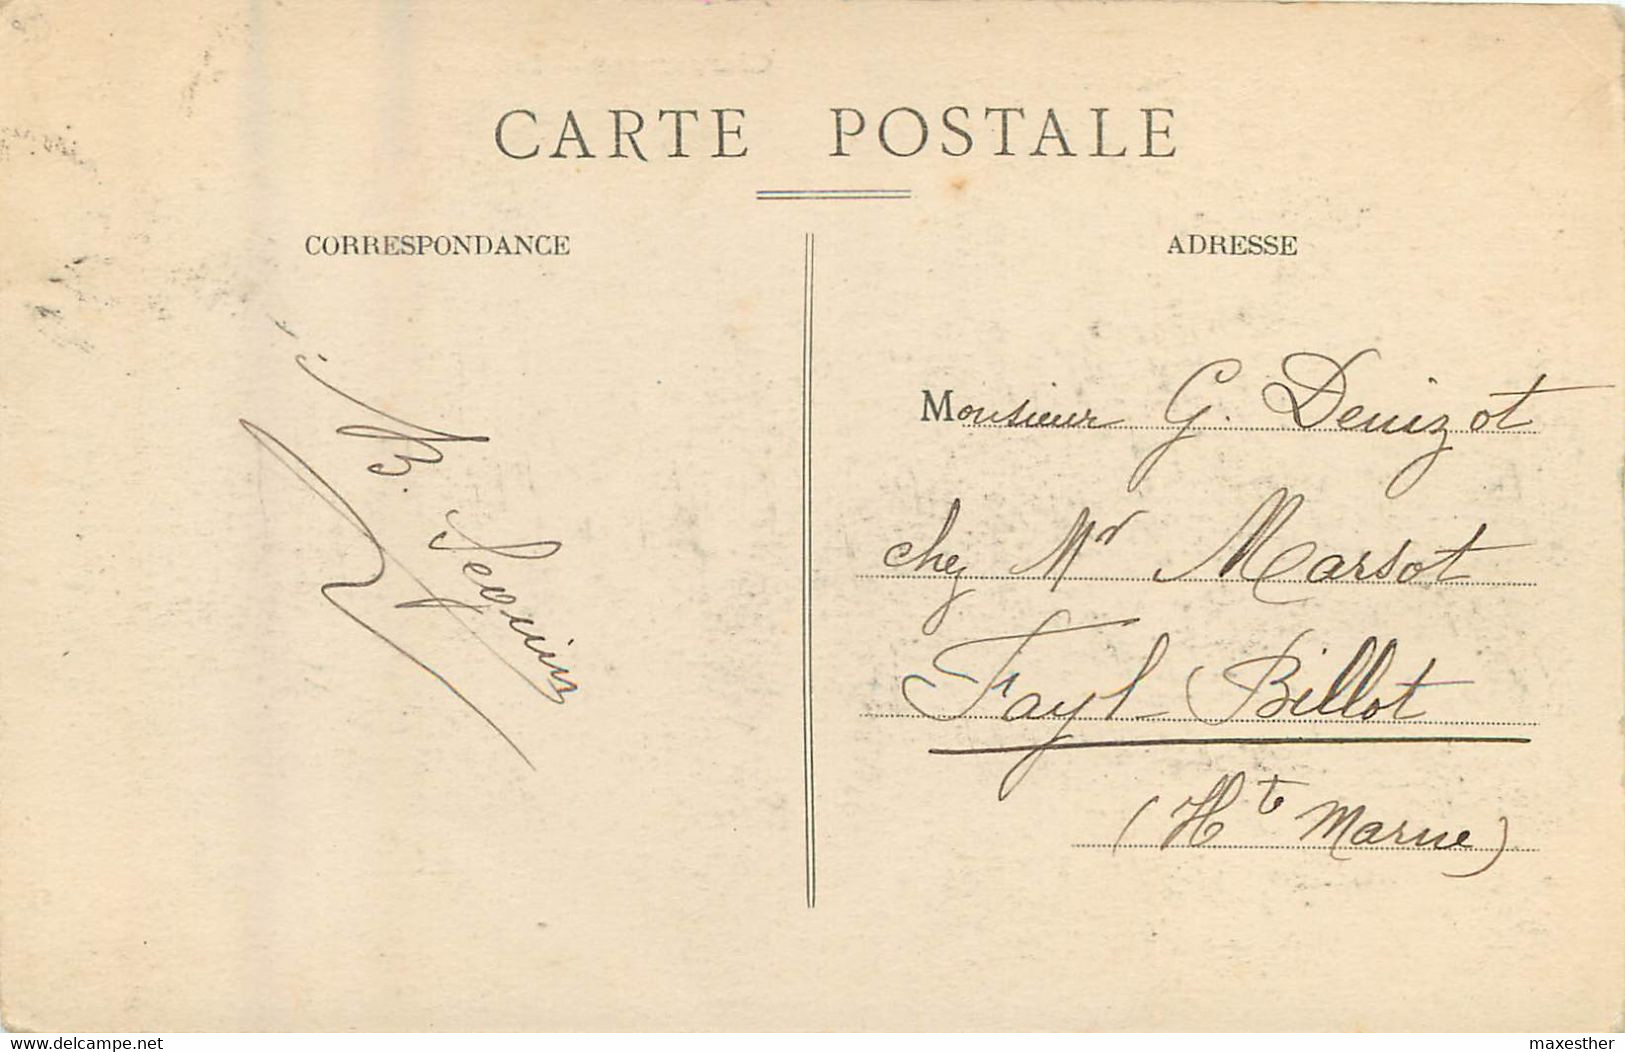 CARTE POSTALE
CORRESPONDANCE
ADRESSE
B. Seguin
Monsieur G. Denizot
chez Mr Marsot
Fayl-Billot
(Hte Marne)
www.delcampe.net
maxesther